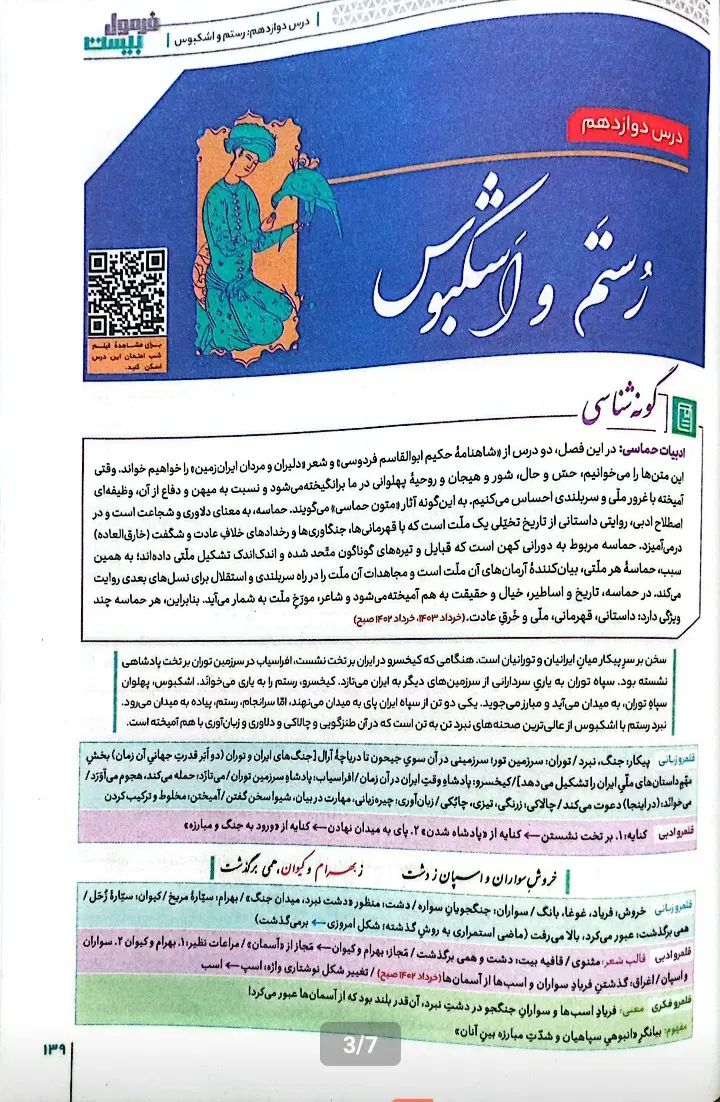 درس دوازدهم: رستم و اشکبوس
فرمول
بیست
درس دوازدهم
رُستَم و اَشکبوس
برای مشاهدهٔ فیلم
شب امتحان این درس
اسکن کنید.
گونه‌شناسی
ادبیات حماسی: در این فصل، دو درس از «شاهنامهٔ حکیم ابوالقاسم فردوسی» و شعر «دلیران و مردان ایران‌زمین» را خواهیم خواند. وقتی
این متن‌ها را می‌خوانیم، حسّ و حال، شور و هیجان و روحیهٔ پهلوانی در ما برانگیخته می‌شود و نسبت به میهن و دفاع از آن، وظیفه‌ای
آمیخته با غرور ملّی و سربلندی احساس می‌کنیم. به این‌گونه آثار «متون حماسی» می‌گویند. حماسه، به معنای دلاوری و شجاعت است و در
اصطلاح ادبی، روایتی داستانی از تاریخ تخیّلی یک ملّت است که با قهرمانی‌ها، جنگاوری‌ها و رخدادهای خلافِ عادت و شگفت (خارق‌العاده)
درمی‌آمیزد. حماسه مربوط به دورانی کهن است که قبایل و تیره‌های گوناگون متّحد شده و اندک‌اندک تشکیل ملّتی داده‌اند؛ به همین
سبب، حماسهٔ هر ملّتی، بیان‌کنندهٔ آرمان‌های آن ملّت است و مجاهدات آن ملّت را در راه سربلندی و استقلال برای نسل‌های بعدی روایت
می‌کند. در حماسه، تاریخ و اساطیر، خیال و حقیقت به هم آمیخته می‌شود و شاعر، مورّخِ ملّت به شمار می‌آید. بنابراین، هر حماسه چند
ویژگی دارد: داستانی، قهرمانی، ملّی و خَرقِ عادت. (خرداد ۱۴۰۳، خرداد ۱۴۰۲ صبح)
سخن بر سرِ پیکار میان ایرانیان و تورانیان است. هنگامی که کیخسرو در ایران بر تخت نشست، افراسیاب در سرزمین توران بر تخت پادشاهی
نشسته بود. سپاه توران به یاریِ سردارانی از سرزمین‌های دیگر به ایران می‌تازد. کیخسرو، رستم را به یاری می‌خوانَد. اشکبوس، پهلوان
سپاه توران، به میدان می‌آید و مبارز می‌جوید. یکی دو تن از سپاه ایران پای به میدان می‌نهند، امّا سرانجام، رستم، پیاده به میدان می‌رود.
نبرد رستم با اشکبوس از عالی‌ترین صحنه‌های نبرد تن به تن است که در آن طنزگویی و چالاکی و دلاوری و زبان‌آوری با هم آمیخته است.
قلمرو زبانی پیکار: جنگ، نبرد / توران: سرزمین تور؛ سرزمینی در آن سوی جیحون تا دریاچهٔ آرال [جنگ‌های ایران و توران (دو اَبَر قدرتِ جهانیِ آن زمان) بخشِ
مهمِّ داستان‌های ملّیِ ایران را تشکیل می‌دهد] / کیخسرو: پادشاهِ وقتِ ایران در آن زمان / افراسیاب: پادشاهِ سرزمینِ توران / می‌تازد: حمله می‌کند، هجوم می‌آوَرَد /
می‌خوانَد: (در اینجا) دعوت می‌کند / چالاکی: زرنگی، تیزی، چابُکی / زبان‌آوری: چیره‌زبانی، مهارت در بیان، شیوا سخن گفتن / آمیختن: مخلوط و ترکیب کردن
قلمرو ادبی کنایه: ۱. بر تخت نشستن ← کنایه از «پادشاه شدن» ۲. پای به میدان نهادن ← کنایه از «ورود به جنگ و مبارزه»
خروشِ سواران و اسپان ز دشت ز بهرام و کیوان، همی برگذشت
قلمرو زبانی خروش: فریاد، غوغا، بانگ / سواران: جنگجویانِ سواره / دشت: منظور «دشت نبرد، میدان جنگ» / بهرام: سیّارهٔ مریخ / کیوان: سیّارهٔ زُحَل /
همی برگذشت: عبور می‌کرد، بالا می‌رفت (ماضی استمراری به روشِ گذشته؛ شکل امروزی ← برمی‌گذشت)
قلمرو ادبی قالب شعر: مثنوی / قافیه بیت: دشت و همی برگذشت / مَجاز: بهرام و کیوان ← مَجاز از «آسمان» / مراعات نظیر: ۱. بهرام و کیوان ۲. سواران
و اسپان / اغراق: گذشتنِ فریادِ سواران و اسب‌ها از آسمان‌ها (خرداد ۱۴۰۲ صبح) / تغییر شکل نوشتاری واژه: اسپ ← اسب
قلمرو فکری معنی: فریادِ اسب‌ها و سوارانِ جنگجو در دشتِ نبرد، آن‌قدر بلند بود که از آسمان‌ها عبور می‌کرد!
مفهوم: بیانگرِ «انبوهیِ سپاهیان و شدّتِ مبارزه بینِ آنان»
3/7
۱۳۹